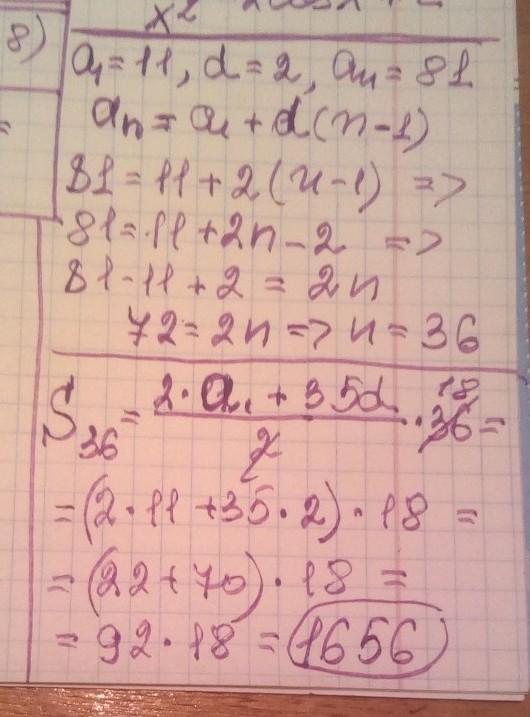 8)
a₁ = 11, d = 2, aₙ = 81
aₙ = a₁ + d(n-1)
81 = 11 + 2(n-1) =>
81 = 11 + 2n - 2 =>
81 - 11 + 2 = 2n
72 = 2n => n = 36
S₃₆ = (2·a₁ + 35d)/2 · 36 18 =
= (2·11 + 35·2)·18 =
= (22 + 70)·18 =
= 92·18 = 1656